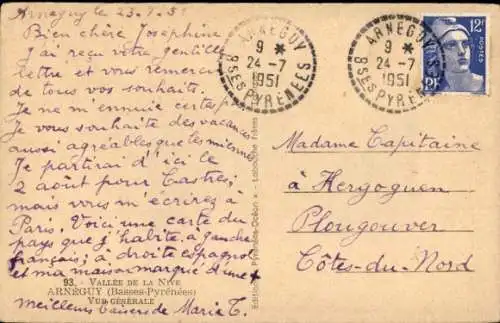 Arnéguy le 23.7.51
Bien chère Josephine
J'ai reçu votre gentille
lettre et vous remercie
de tous vos souhaits.
Je ne m'ennuie certes pas
Je vous souhaite des vacances
aussi agréables que les miennes
Je partirai d'ici le
2 août pour Castres,
mais vous m'écrirez à
Paris. Voici une carte du
pays que j'habite, à gauche
français, à droite espagnol
et ma maison marqué d'une +
93. - VALLÉE DE LA NIVE
ARNÉGUY (Basses-Pyrénées)
VUE GÉNÉRALE
meilleurs baisers de Marie T.
ARNEGUY
9 *
24-7
1951
BSES PYRENEES
ARNEGUY
9 *
24-7
1951
BSES PYRENEES
12F
Pyrénées-Océan
Labouche Frères
Madame Capitaine
à Kergoguen
Plougouver
Côtes-du-Nord